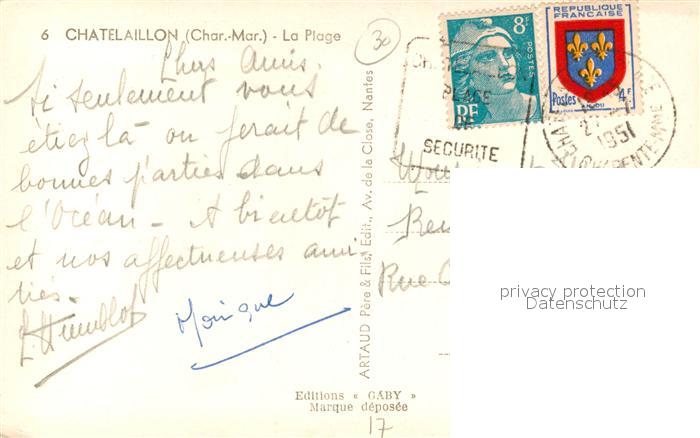 6 CHATELAILLON (Char.-Mar.) - La Plage
30
Chers Amis.
Si seulement vous
étiez là on ferait de
bonnes parties dans
l'Océan - A bientôt
et nos affectueuses ami
tiés.
Humblot
Monique
ARTAUD Père & Fils, Edit., Av. de la Close, Nantes
Editions « GABY »
Marque déposée
17
8F
POSTES
RF
REPUBLIQUE
FRANCAISE
Postes 4F
ANJOU
PLAGE
SECURITE
1951
Rue
privacy protection
Datenschutz